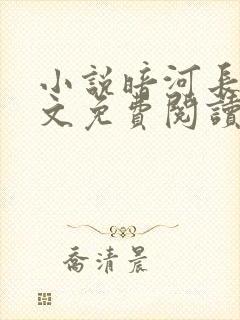 小說暗河長
文免費閱讀
喬清晨